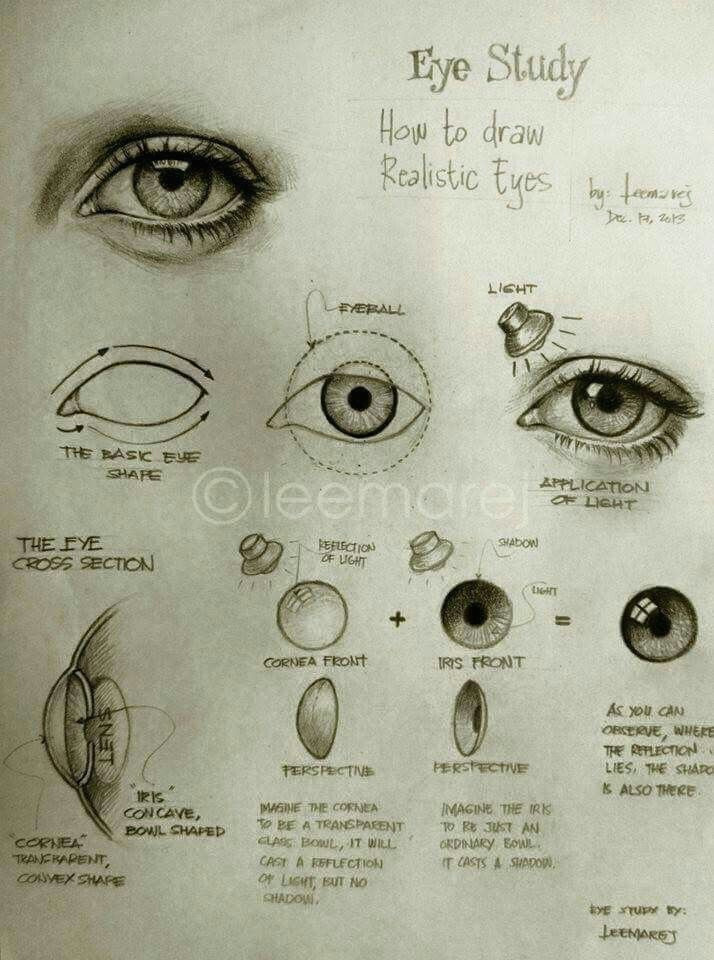 Eye Study
How to draw
Realistic Eyes
by: leemarej
Dec. 17, 2013
LIGHT
EYEBALL
THE BASIC EYE
SHAPE
APPLICATION
OF LIGHT
©leemarej
THE EYE
CROSS SECTION
REFLECTION
OF LIGHT
SHADOW
LIGHT
+
=
CORNEA FRONT
IRIS FRONT
LENS
PERSPECTIVE
PERSPECTIVE
"IRIS"
CONCAVE,
BOWL SHAPED
"CORNEA"
TRANSPARENT,
CONVEX SHAPE
IMAGINE THE CORNEA
TO BE A TRANSPARENT
GLASS BOWL, IT WILL
CAST A REFLECTION
OF LIGHT, BUT NO
SHADOW.
IMAGINE THE IRIS
TO BE JUST AN
ORDINARY BOWL.
IT CASTS A SHADOW.
AS YOU CAN
OBSERVE, WHERE
THE REFLECTION
LIES, THE SHADO
IS ALSO THERE.
EYE STUDY BY:
LEEMAREJ